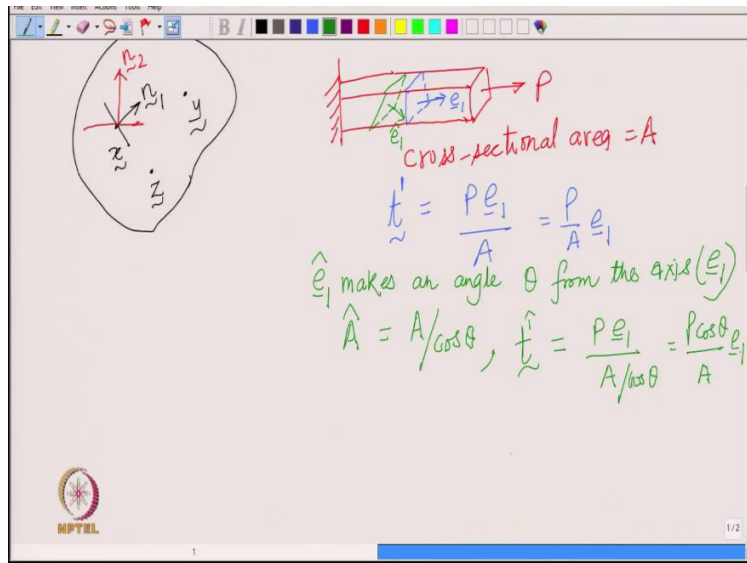 File Edit View Insert Actions Tools Help
n2
n1
y
x
z
P
e1
ê1
cross-sectional area = A
t¹ = P e1 / A = P/A e1
ê1 makes an angle θ from the axis (e1)
Â = A/cosθ, t^1̂ = P e1 / A/cosθ = Pcosθ/A e1
NPTEL
1/2
1